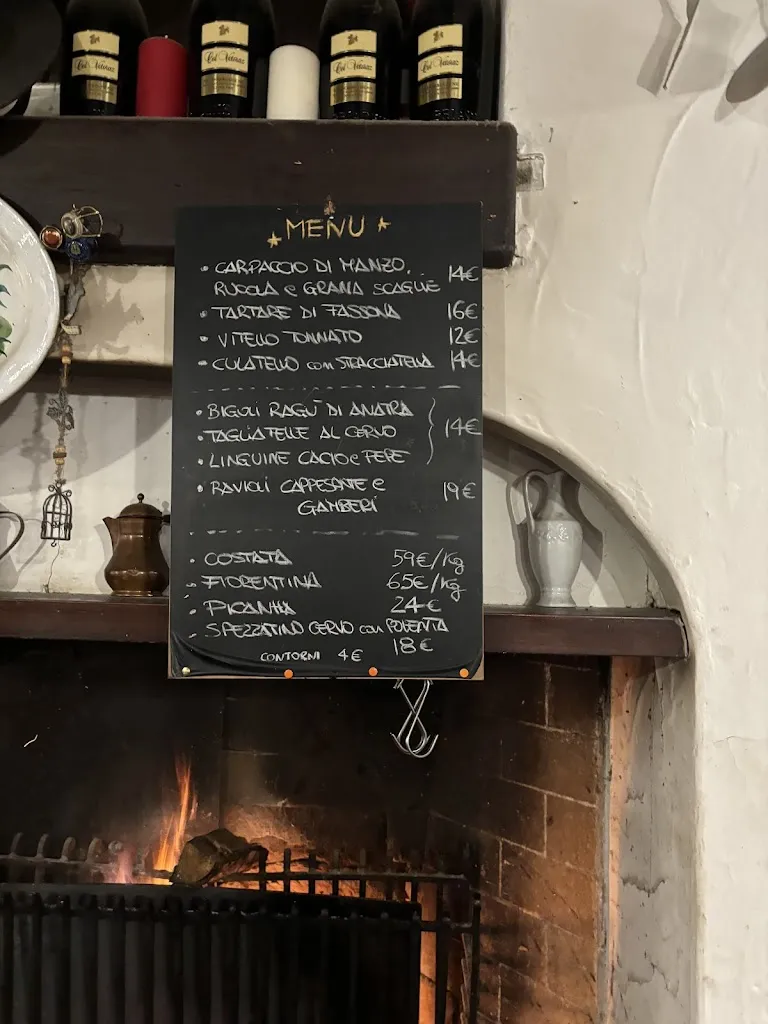 Col Vetoraz
Col Vetoraz
Col Vetoraz
Col Vetoraz
MENU
• CARPACCIO DI MANZO,
RUCOLA e GRANA SCAGLIE 14€
• TARTARE DI FASSONA 16€
• VITELLO TONNATO 12€
• CULATELLO con STRACCIATELLA 14€
• BIGOLI RAGÙ DI ANATRA
• TAGLIATELLE AL CERVO 14€
• LINGUINE CACIO e PEPE
• RAVIOLI CAPPESANTE e 19€
GAMBERI
• COSTATA 59€/Kg
• FIORENTINA 65€/Kg
• PICANHA 24€
• SPEZZATINO CERVO con POLENTA
18€
CONTORNI 4€